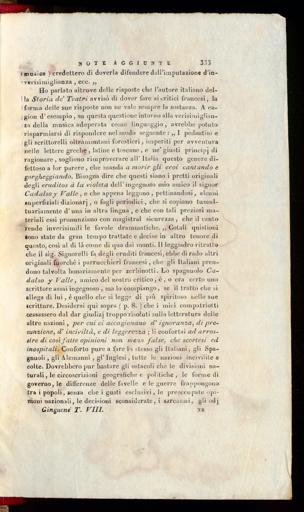 NOTE AGGIUNTE 353
musica) credettero di doverla difendere dall'imputazione d'in-
verisimiglianza, ecc. „
Ho parlato altrove delle risposte che l'autore italiano del-
la Storia de' Teatri avvisò di dover fare ai critici francesi, la
forma delle sue risposte non ne vale sempre la sostanza. A ca-
gion d'esempio, su questa questione intorno alla verisimiglian-
za della musica adoperata come linguaggio, avrebbe potuto
risparmiarsi di rispondere nel modo seguente: „ I pedantini e
gli scrittorelli oltramontani forestieri, imperiti per avventura
nelle lettere greche, latine e toscane, e ne' giusti principj di
ragionare, sogliono rimproverare all'Italia questo genere di-
fettoso a lor parere, che manda a morir gli eroi cantando e
gorgheggiando. Bisogna dire che questi sieno i pretti originali
degli eruditi a la violeta dell'ingegnoso mio amico il signor
Cadalso y Valle, e che appena leggono, pettinandosi, alcuni
superfiziali dizionarj, o fogli periodici, che si copiano tumul-
tuariamente d'una in altra lingua, e che con tali preziosi ma-
teriali essi pronunziano con magistral sicurezza, che il canto
rende inverisimili le favole drammatiche. „ Cotali quistioni
sono state da gran tempo trattate e decise in altro tenore di
questo, così al di là come di qua dai monti. Il leggiadro ritratto
che il sig. Signorelli fa degli eruditi francesi, ebbe di rado altri
originali fuorchè i parrucchieri francesi, che gli Italiani pren-
dono talvolta bonariamente per zerbinotti. Lo spagnuolo Ca-
dalso y Valle, amico del nostro critico, è, o era certo uno
scrittore assai ingegnoso, ma lo compiango, se il tratto che si
allega di lui, è quello che si legge di più spiritoso nelle sue
scritture. Desidersi qui sopra (p. 8.) che i miei compatriotti
cessassero dal dar giudizj troppo risoluti sulla letteratura delle
altre nazioni, per cui si accagionano d'ignoranza, di pre-
sunzione, d'inciviltà, e di leggerezza; li confortai ad arros-
sire di così fatte opinioni non meno false, che scortesi ed
inospitali. Conforto pure a fare lo stesso gli Italiani, gli Spa-
gnuoli, gli Alemanni, gl'Inglesi, tutte le nazioni incivilite e
colte. Dovrebbero pur bastare gli ostacoli che le divisioni na-
turali, le circoscrizioni geografiche e politiche, le forme di
governo, le differenze delle favelle e le guerre frappongono
tra i popoli, senza che i gusti esclusivi, le preoccupate opi-
nioni nazionali, le decisioni sconsiderate, i sarcasmi, gli odj
Ginguené T. VIII.